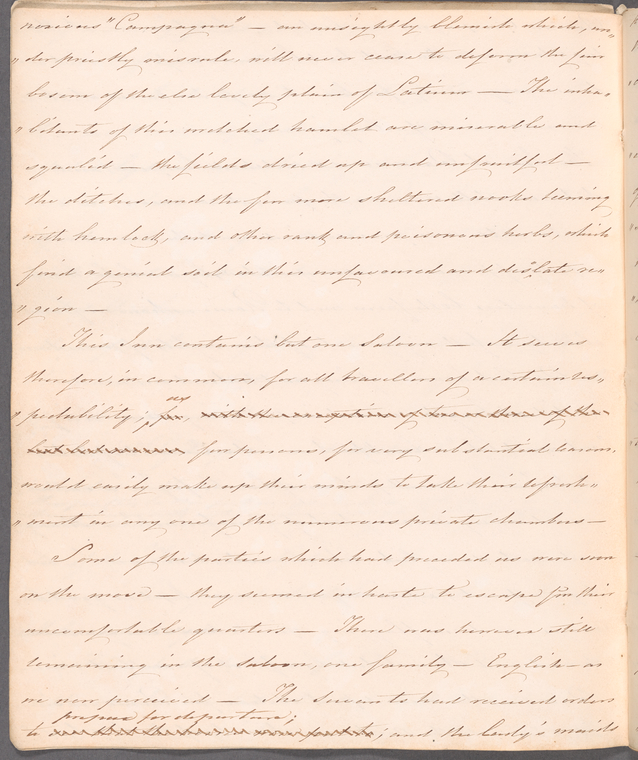 noxious "Campagna" — an unsightly blemish which, un„
„der priestly misrule, will never cease to deform the fair
bosom of the else lovely plain of Latium — The inha„
„bitants of this wretched hamlet are miserable and
squalid — the fields dried up and unfruitful —
the ditches, and the few more sheltered nooks teeming
with hemlock, and other rank and poisonous herbs, which
find a genial soil in this unfavoured and deslate re„
„gion —
This Inn contains but one Saloon — It serves
therefore, in common, for all travellers of a certain res„
as
„pectability; for, with the exception of
for persons, for very substantial reasons,
would easily make up their minds to take their refresh„
„ment in any one of the numerous private chambers —
Some of the parties which had preceded us were soon
on the move — they seemed in haste to escape from their
uncomfortable quarters — There was however still
remaining in the saloon, one family — English — as
we now perceived — The Servants had received orders
prepare for departure;
to ; and the Lady's maids